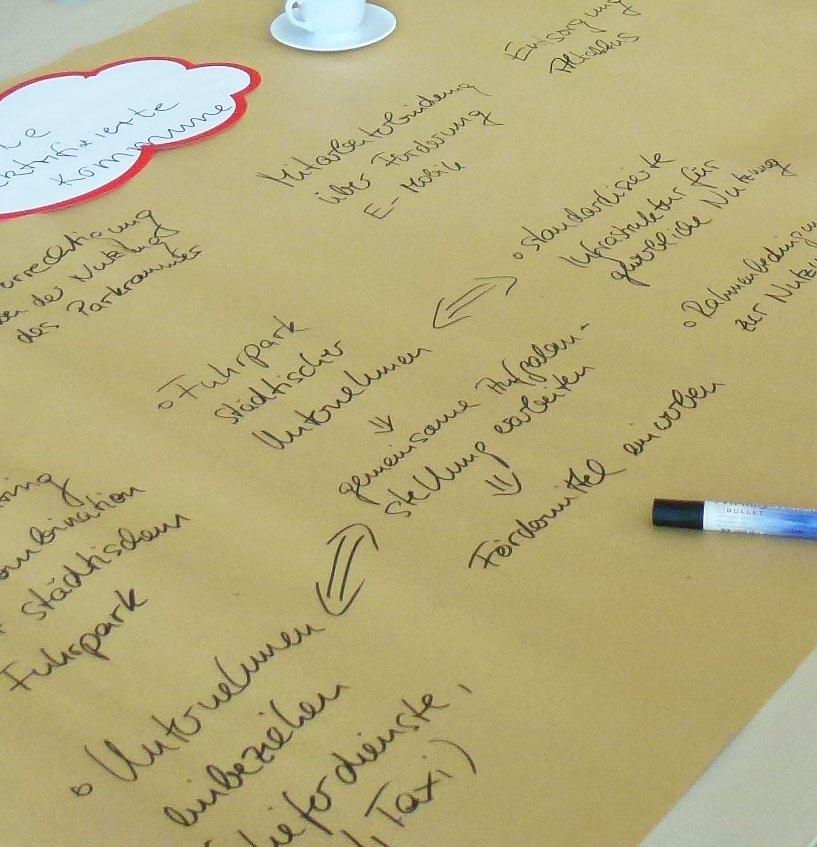 Entsorgung
Altakkus
Kommune
Mitarbeiterbindung
über Förderung
E-Mobile
der Nutzung
des Parkraumes
o standardisierte
Infrastruktur für
gewerbliche Nutzung
o Rahmenbedingun
zur Nutz
o Fuhrpark
städtischer
Unternehmen
⇓
gemeinsame Aufgaben-
stellung erarbeiten
⇓
Fördermittel einwerben
städtischem
Fuhrpark
o Unternehmen
einbeziehen
Lieferdienste,
Taxi)
BULLET